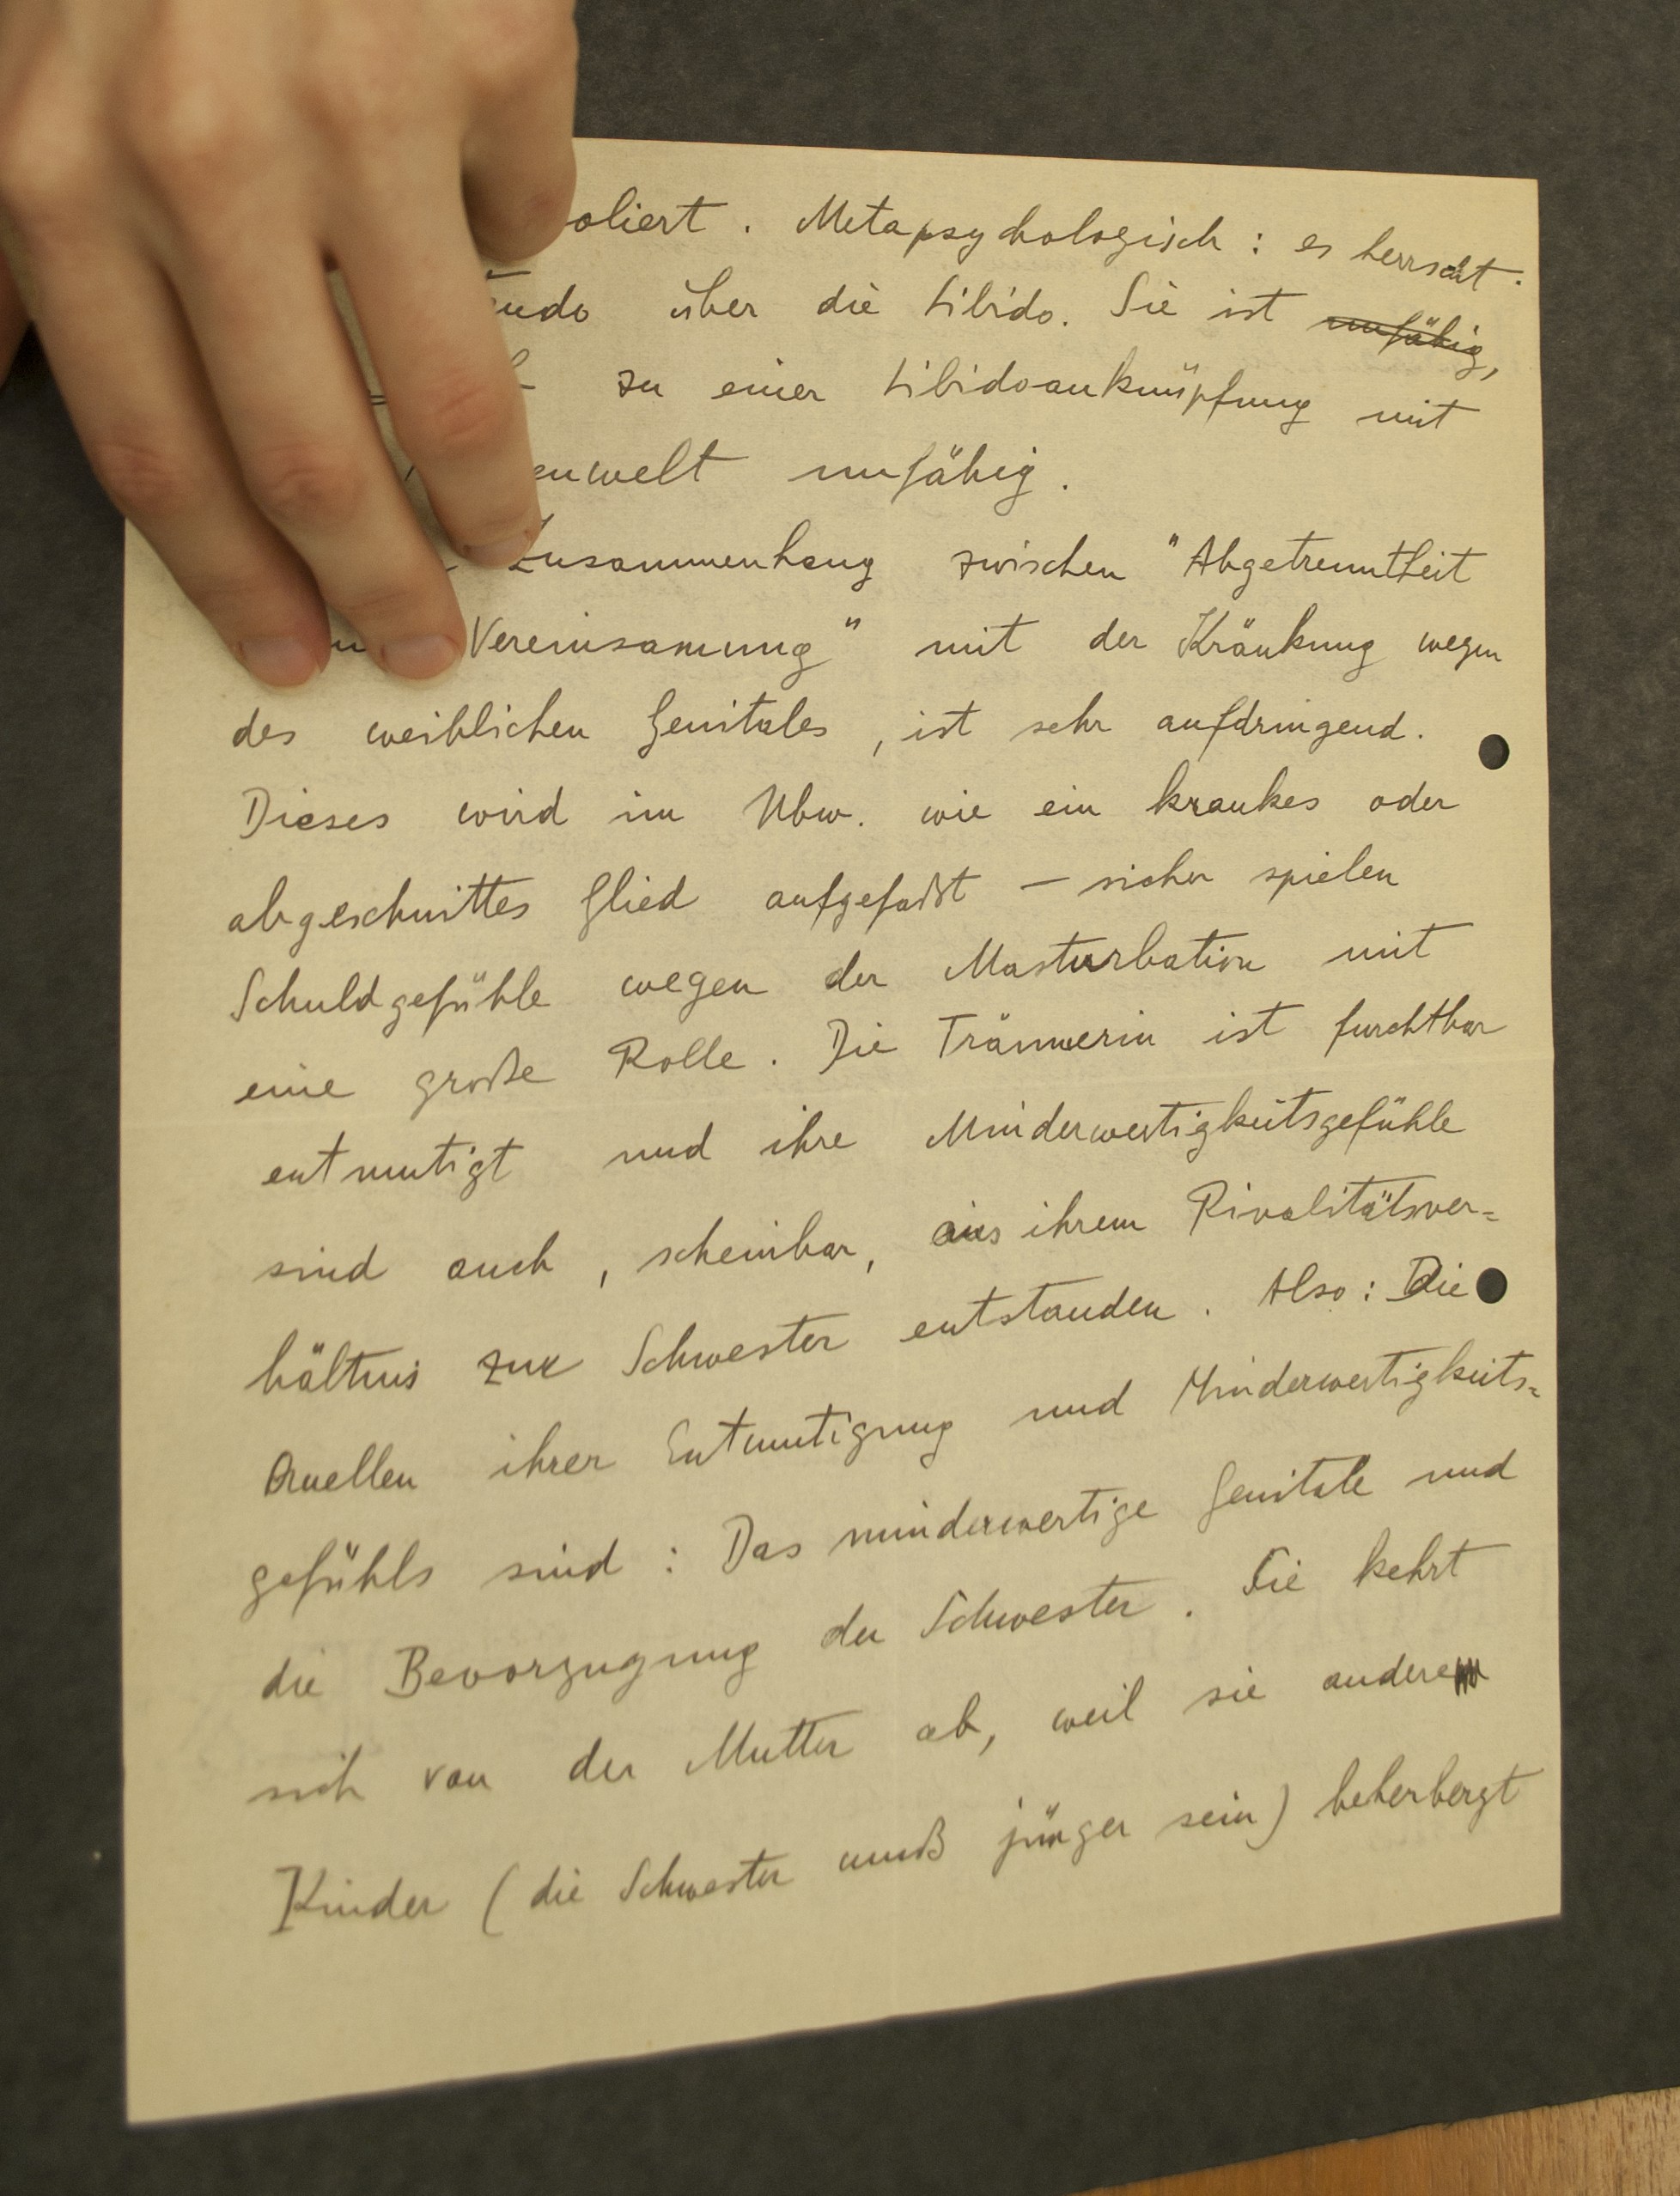 oliert. Metapsychologisch: es herrscht.
tudo über die Libido. Sie ist unfähig,
zu einer Libidoanknüpfung mit
enwelt unfähig.
Zusammenhang zwischen "Abgetrenntheit
Vereinsamung" mit der Kränkung wegen
des weiblichen Genitales, ist sehr aufdringend.
Dieses wird im Ubw. wie ein krankes oder
abgeschnittes Glied aufgefaßt — sicher spielen
Schuldgefühle wegen der Masturbation mit
eine große Rolle. Die Träumerin ist furchtbar
entmutigt und ihre Minderwertigkeitsgefühle
sind auch, scheinbar, aus ihrem Rivalitätsver=
hältnis zur Schwester entstanden. Also: Die
Quellen ihrer Entmutigung und Minderwertigkeits=
gefühls sind: Das minderwertige Genitale und
die Bevorzugung der Schwester. Sie kehrt
sich von der Mutter ab, weil sie andere
Kinder (die Schwester muß jünger sein) beherbergt